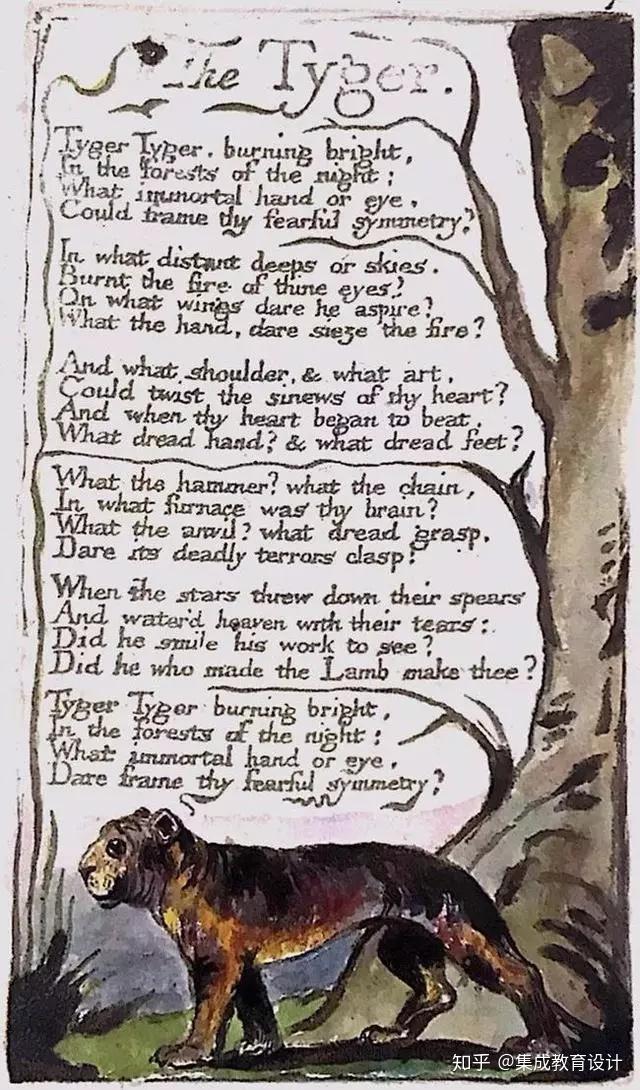 The Tyger.
Tyger Tyger. burning bright,
In the forests of the night:
What immortal hand or eye.
Could frame thy fearful symmetry?
In what distant deeps or skies.
Burnt the fire of thine eyes?
On what wings dare he aspire?
What the hand, dare sieze the fire?
And what shoulder, & what art,
Could twist the sinews of thy heart?
And when thy heart began to beat,
What dread hand? & what dread feet?
What the hammer? what the chain,
In what furnace was thy brain?
What the anvil? what dread grasp,
Dare its deadly terrors clasp?
When the stars threw down their spears
And water'd heaven with their tears:
Did he smile his work to see?
Did he who made the Lamb make thee?
Tyger Tyger burning bright,
In the forests of the night:
What immortal hand or eye,
Dare frame thy fearful symmetry?
知乎 @集成教育设计